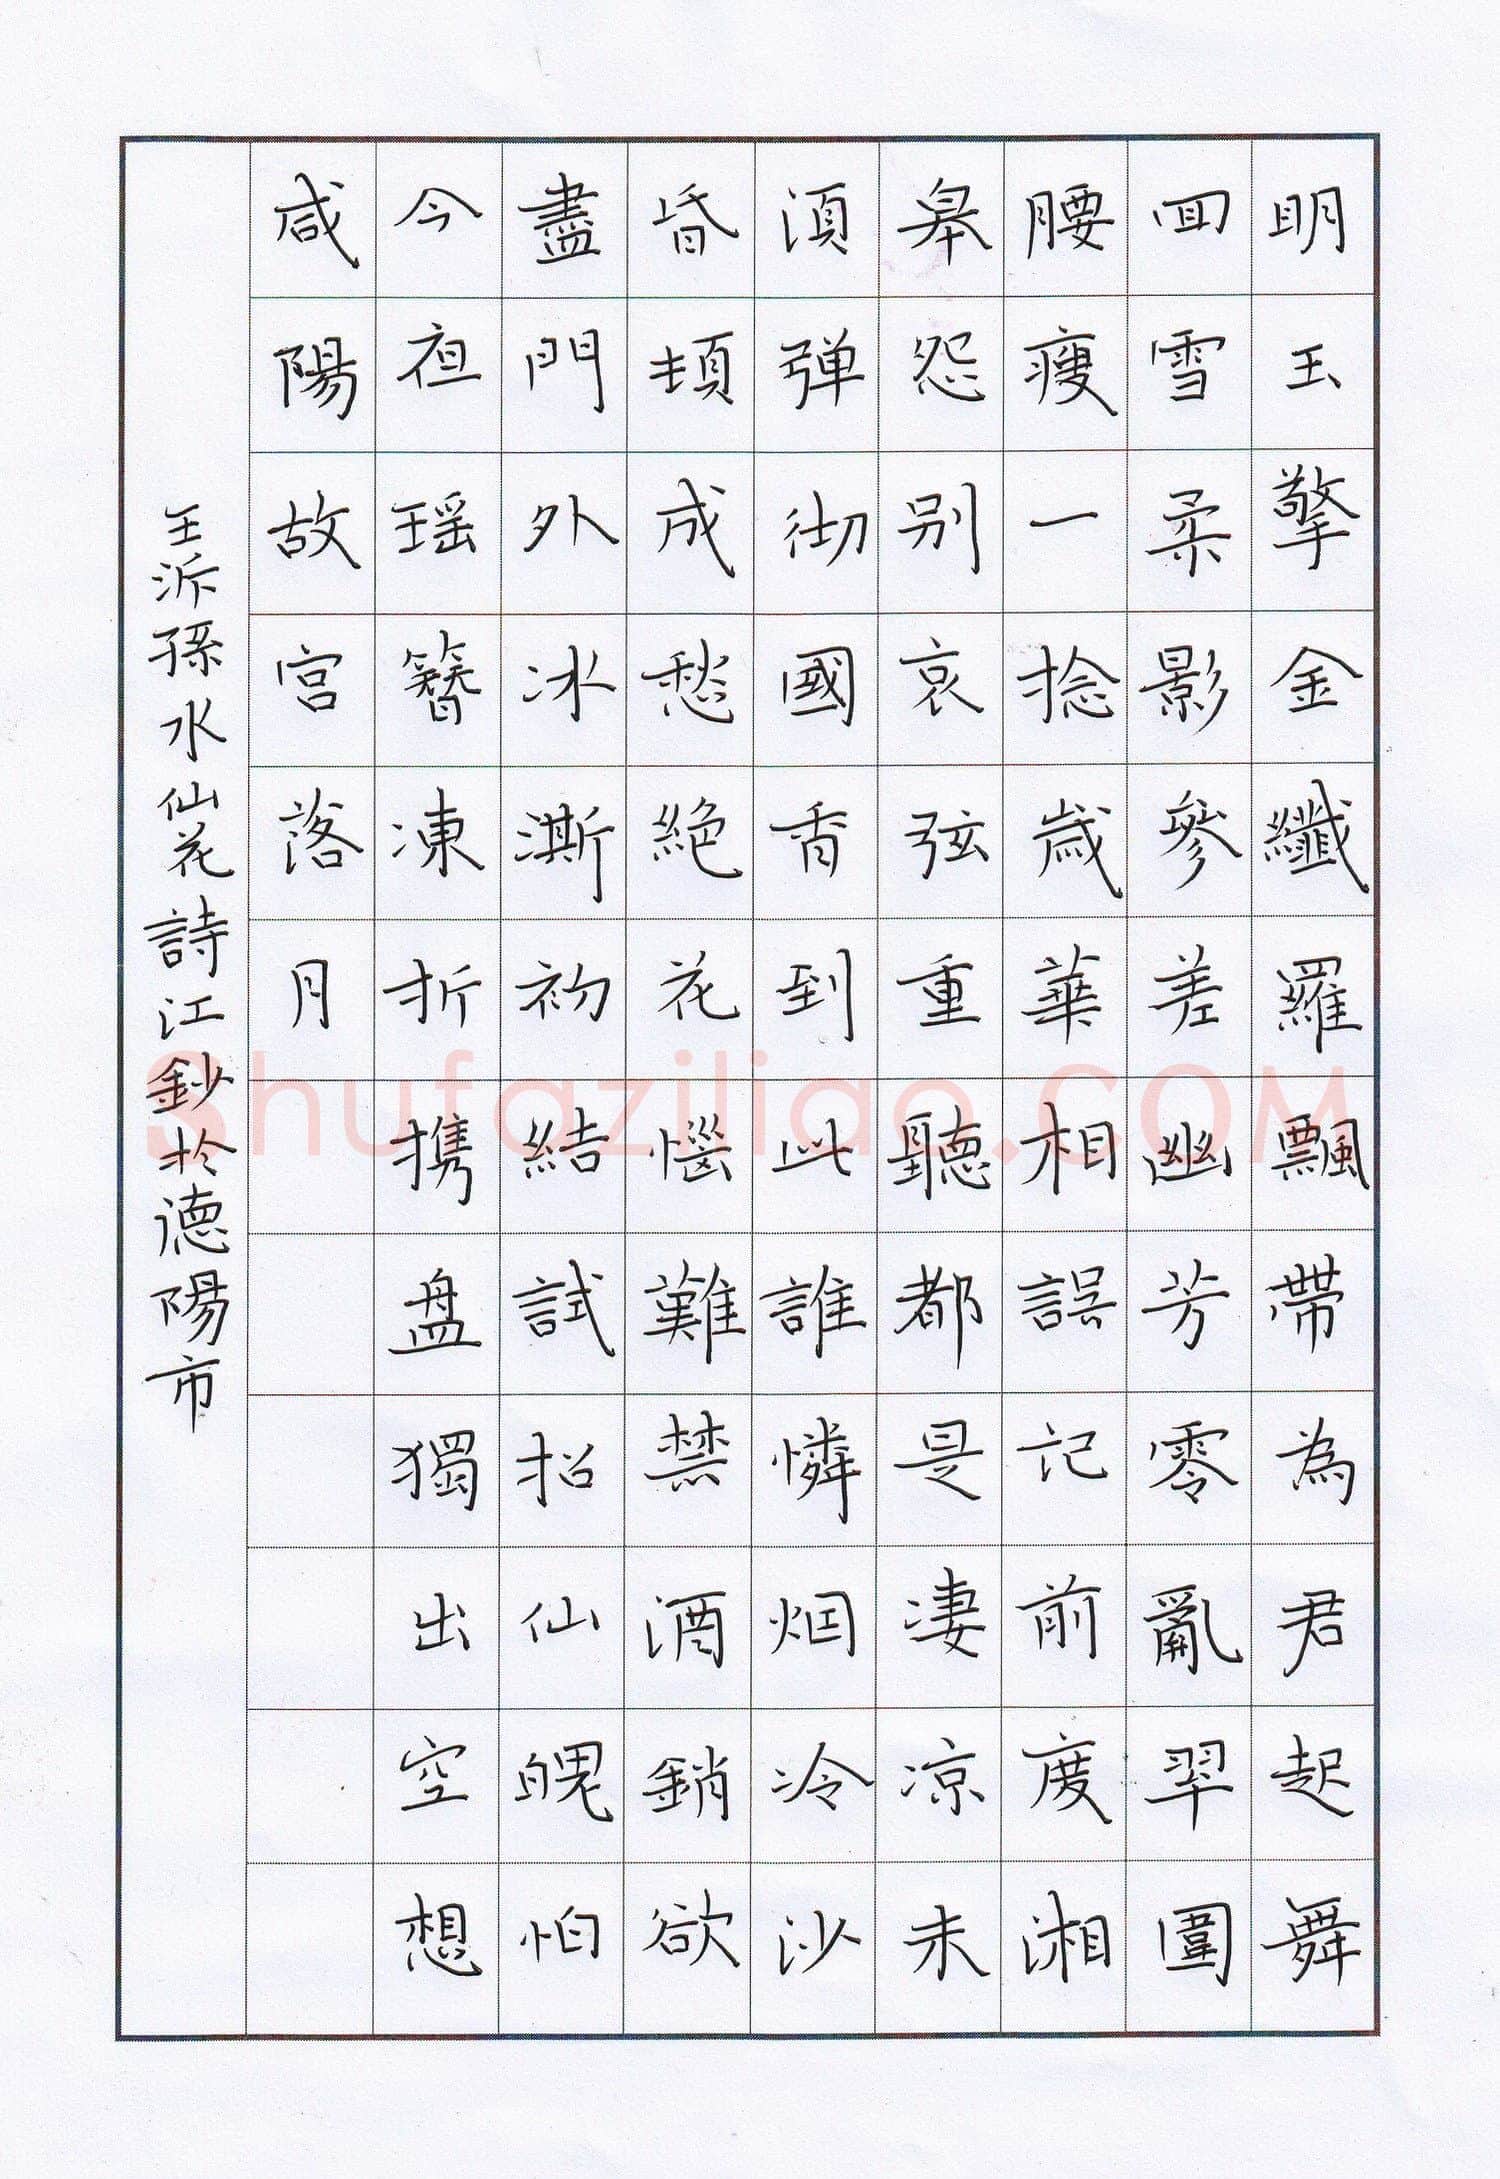 明玉擎金纖羅飄帶為君起舞
回雪柔影參差幽芳零亂翠圍
腰瘦一捻歲華相誤記前度湘
皋怨别哀弦重聽都是凄凉未
須弹彻國香到此誰憐烟冷沙
昏頓成愁絕花惱難禁酒銷欲
盡門外冰澌初結試招仙魄怕
今夜瑶簪凍折携盤獨出空想
咸陽故宫落月
王沂孫水仙花詩江鈔於德陽市
Shufaziliao.COM